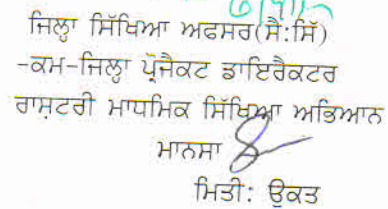 ਜਿਲ੍ਹਾ ਸਿੱਖਿਆ ਅਫਸਰ(ਸੈ:ਸਿੱ)
-ਕਮ-ਜਿਲ੍ਹਾ ਪ੍ਰੋਜੈਕਟ ਡਾਇਰੈਕਟਰ
ਰਾਸ਼ਟਰੀ ਮਾਧਮਿਕ ਸਿੱਖਿਆ ਅਭਿਆਨ
ਮਾਨਸਾ
ਮਿਤੀ: ਉਕਤ